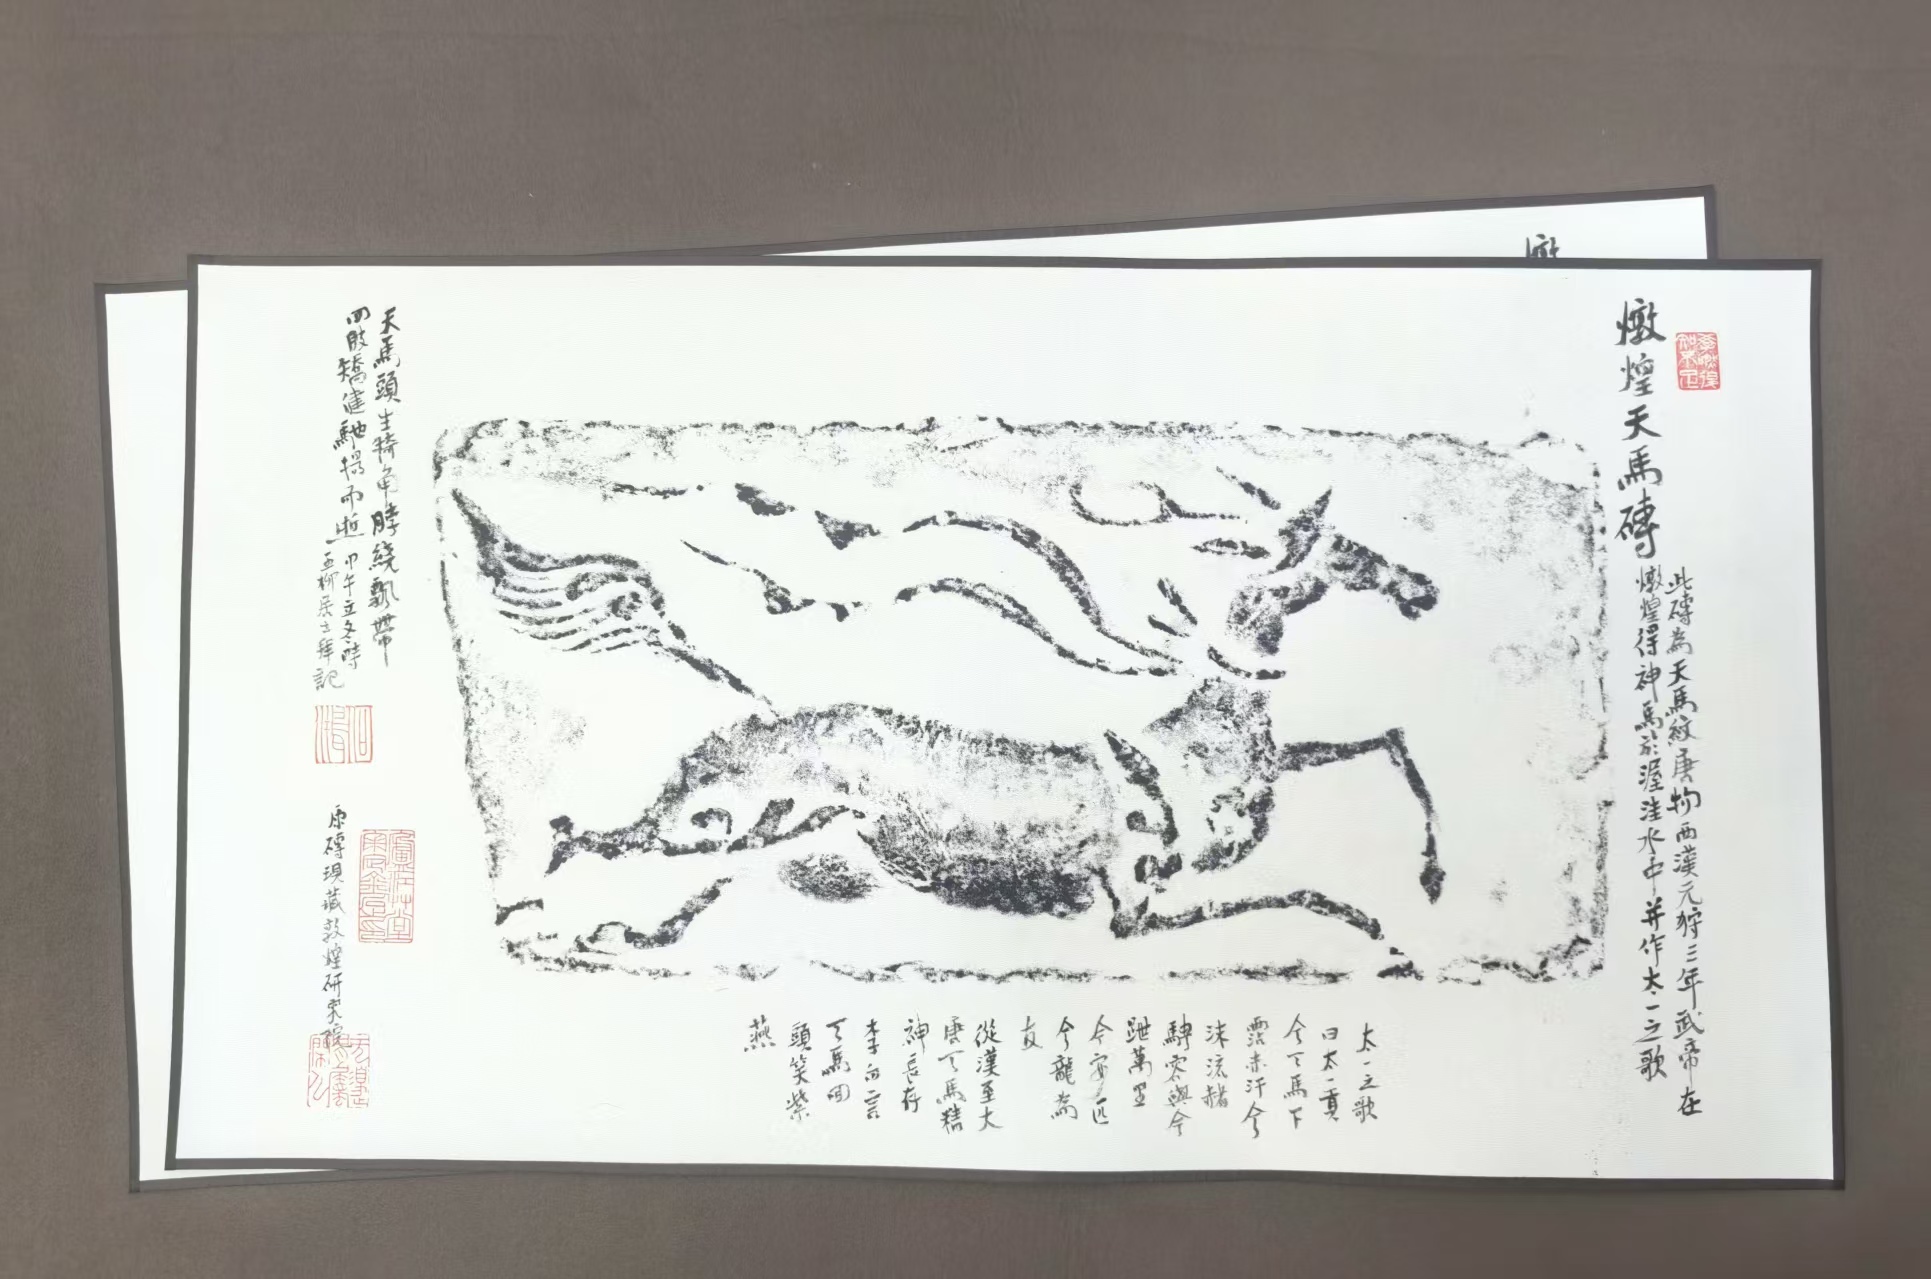 燉煌天馬磚
此磚為天馬紋唐物西漢元狩三年武帝在
燉煌得神馬於渥洼水中并作太一之歌
太一之歌
曰太一貢
兮天馬下
霑赤汗兮
沫流赭
騁容與兮
跇萬里
今安匹
兮龍為
友
從漢至大
唐天馬精
神長存
李白言
天馬回
頭笑紫
燕
天馬頭生犄角脖繞飄帶
四肢矯健馳揚而逝甲午立冬時
五柳居士拜記
原磚現藏敦煌研究院
燉